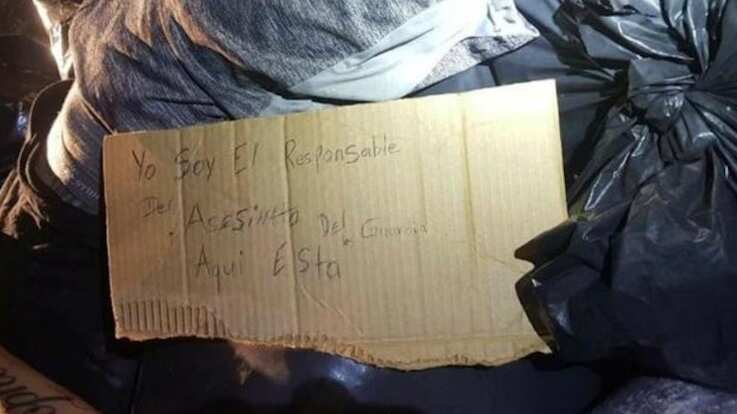 Yo Soy El Responsable
Del Asesinto Del la Guardia
Aqui Esta